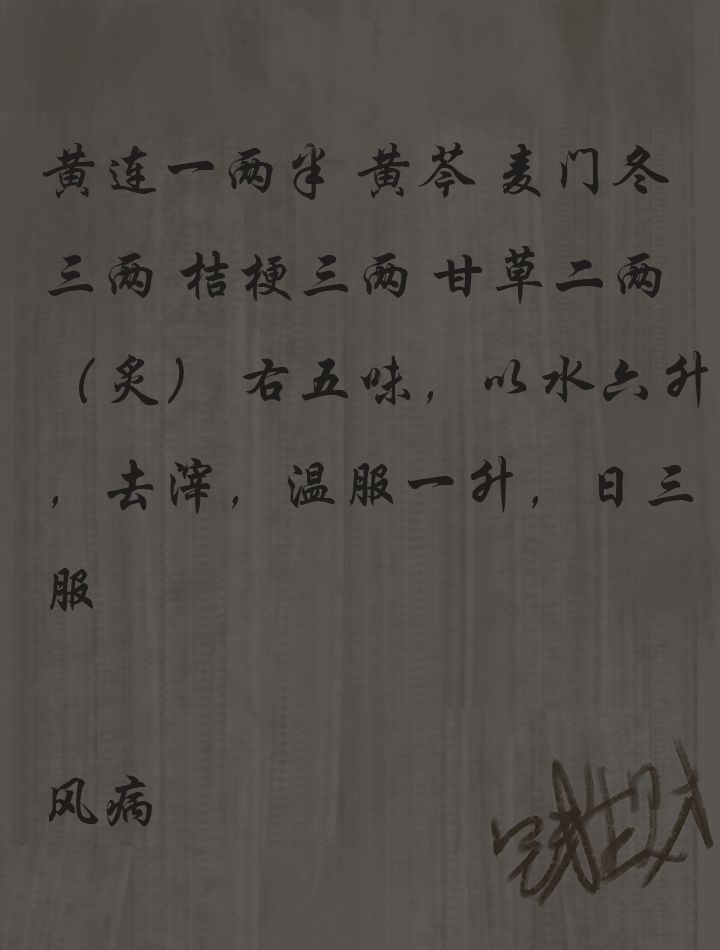 黄连一两半 黄芩 麦门冬
三两 桔梗三两 甘草二两
（炙） 右五味，以水六升
，去滓，温服一升，日三
服
风病